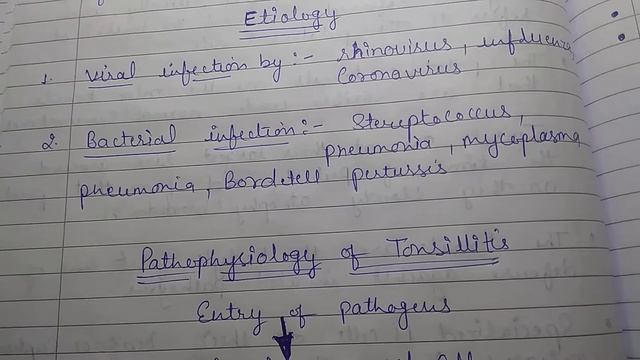 Etiology
1. viral infection by :- rhinovirus, influenza
coronavirus
2. Bacterial infection :- Stereptococcus,
pneumonia, mycoplasma
pneumonia, Bordetell pertussis
Pathophysiology of Tonsillitis
Entry of pathogens